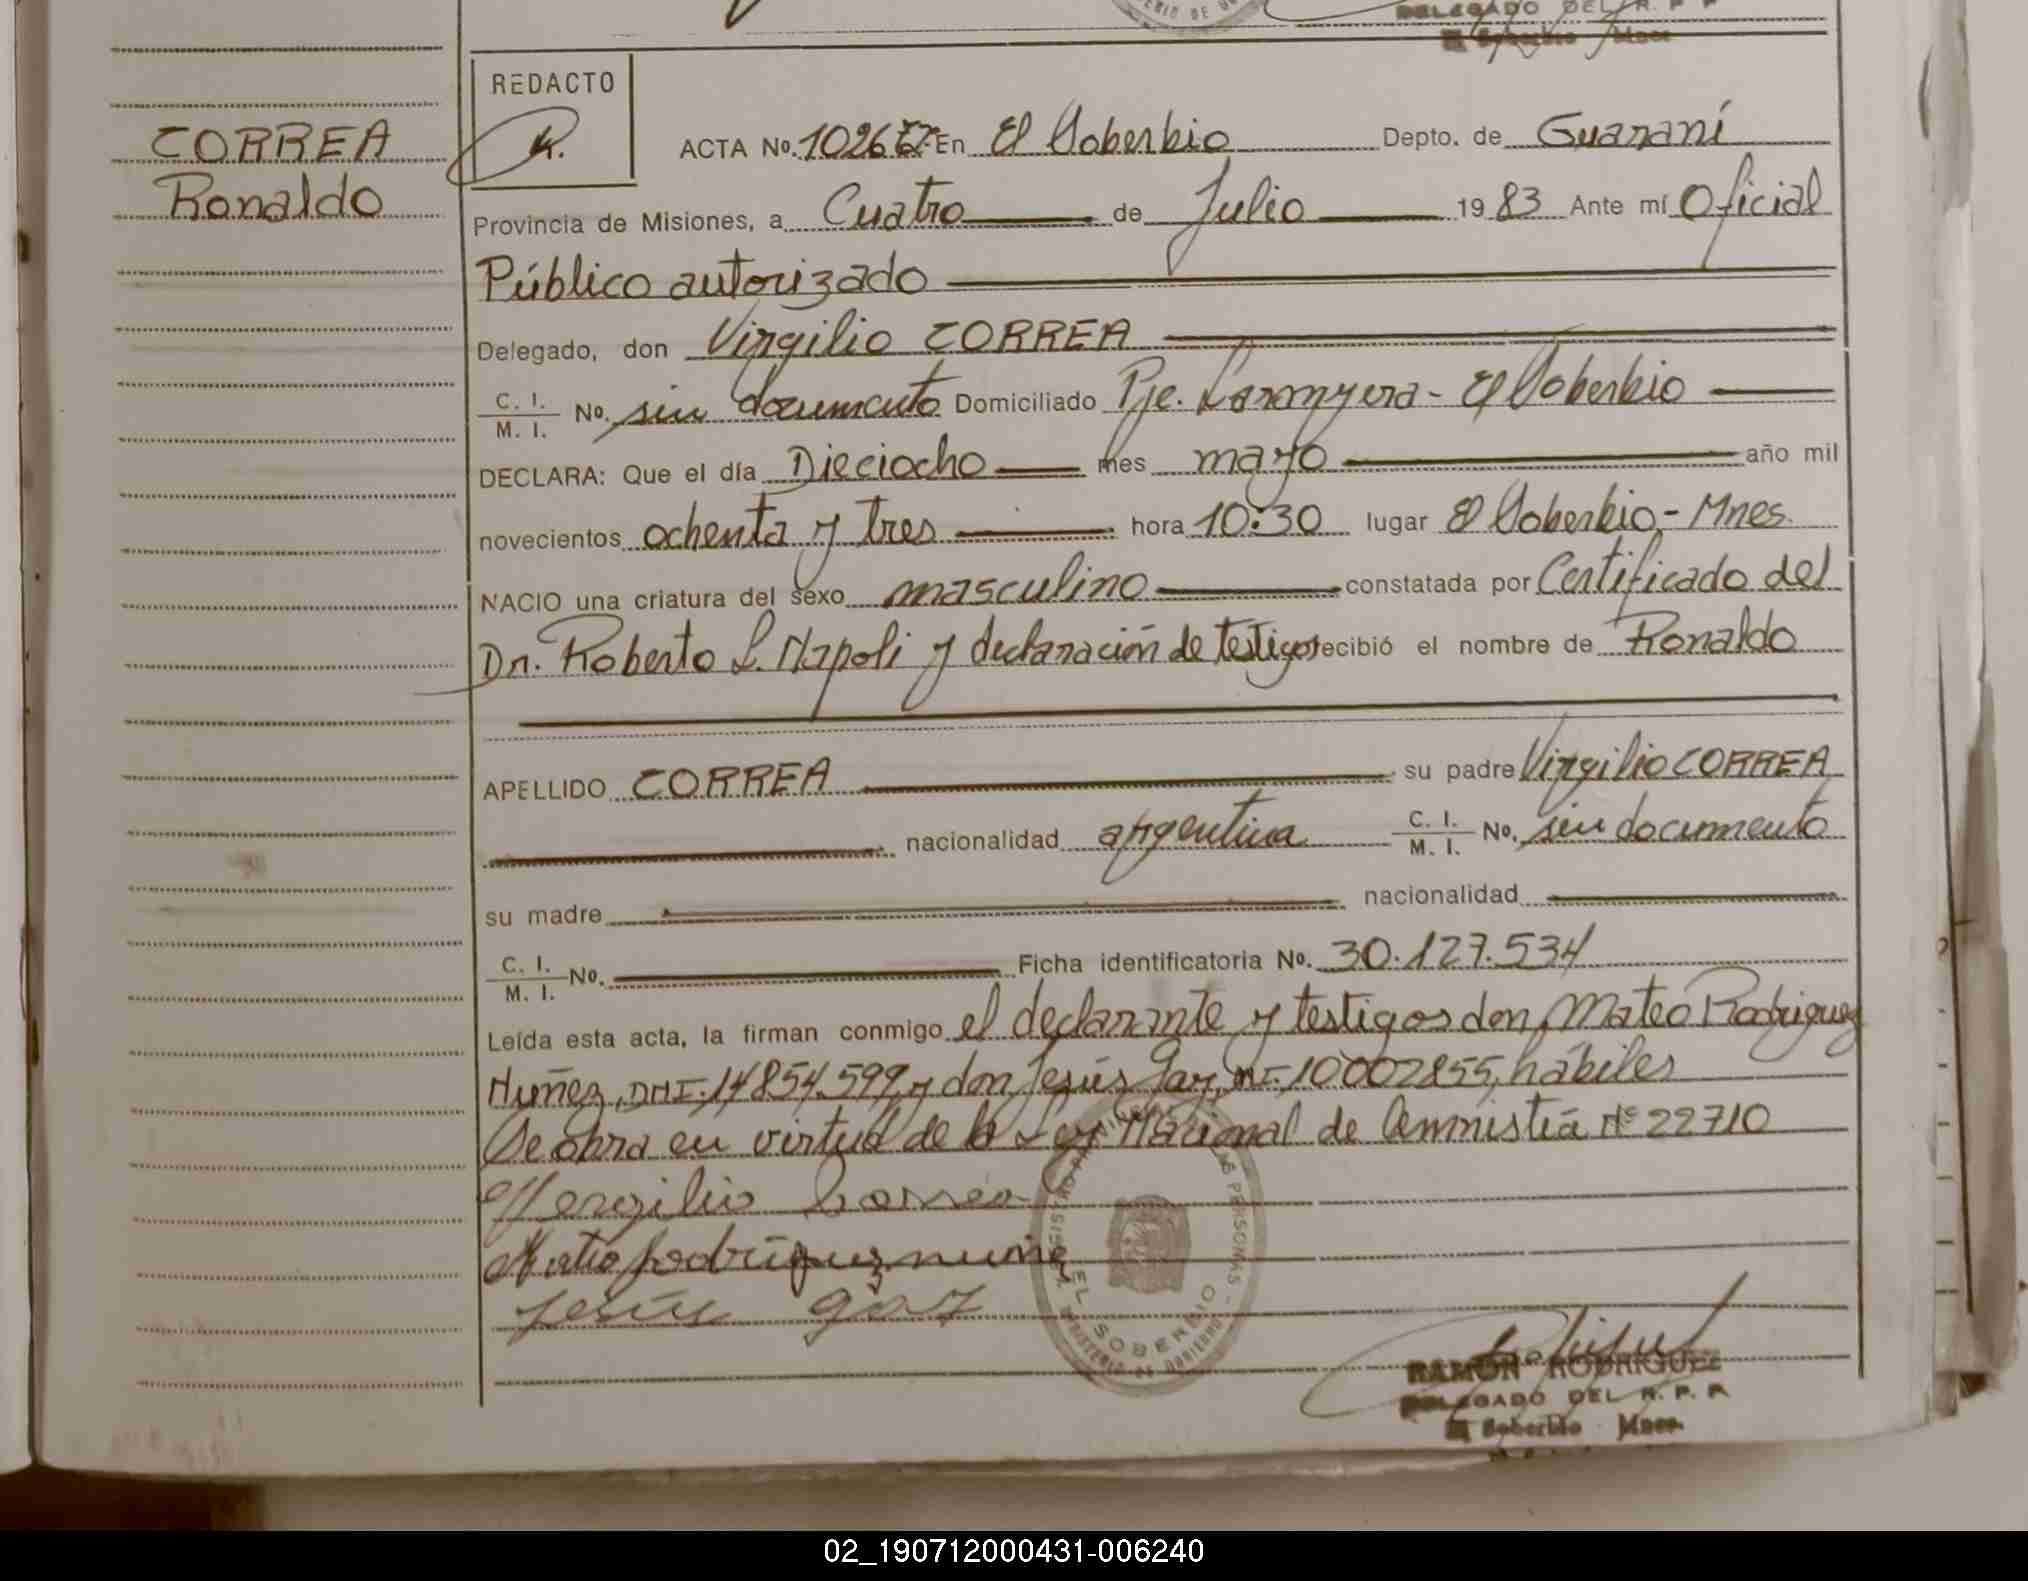 DELEGADO DEL R. P. P
CORREA
Ronaldo
REDACTO
ACTA No. 1026 En El Soberbio Depto. de Guaraní
Provincia de Misiones, a Cuatro de Julio 1983 Ante mí Oficial
Público autorizado
Delegado, don Virgilio CORREA
C. I.
M. I. No. sin documento Domiciliado Pje. - El Soberbio
DECLARA: Que el día Dieciocho mes mayo año mil
novecientos ochenta y tres hora 10:30 lugar El Soberbio - Mnes.
NACIO una criatura del sexo masculino constatada por Certificado del
Dr. Roberto L. Napoli y declaración de testigos recibió el nombre de Ronaldo
APELLIDO CORREA su padre Virgilio CORREA
nacionalidad argentina C. I.
M. I. No. sin documento
su madre nacionalidad
C. I.
M. I. No. Ficha identificatoria No. 30.127.534
Leída esta acta, la firman conmigo el declarante y testigos don, Mateo Rodriguez
Nuñez, DNI. 14854.599, y don Jesús Gay, MI. 10007855, hábiles
Se obra en virtud de la Ley Nacional de Amnistía Nº 22710
Correa
Rodríguez
Jesús
EL SOBERBIO
RAMON RODRIGUEZ
DELEGADO DEL R. P. P.
El Soberbio Mnes.
02_190712000431-006240